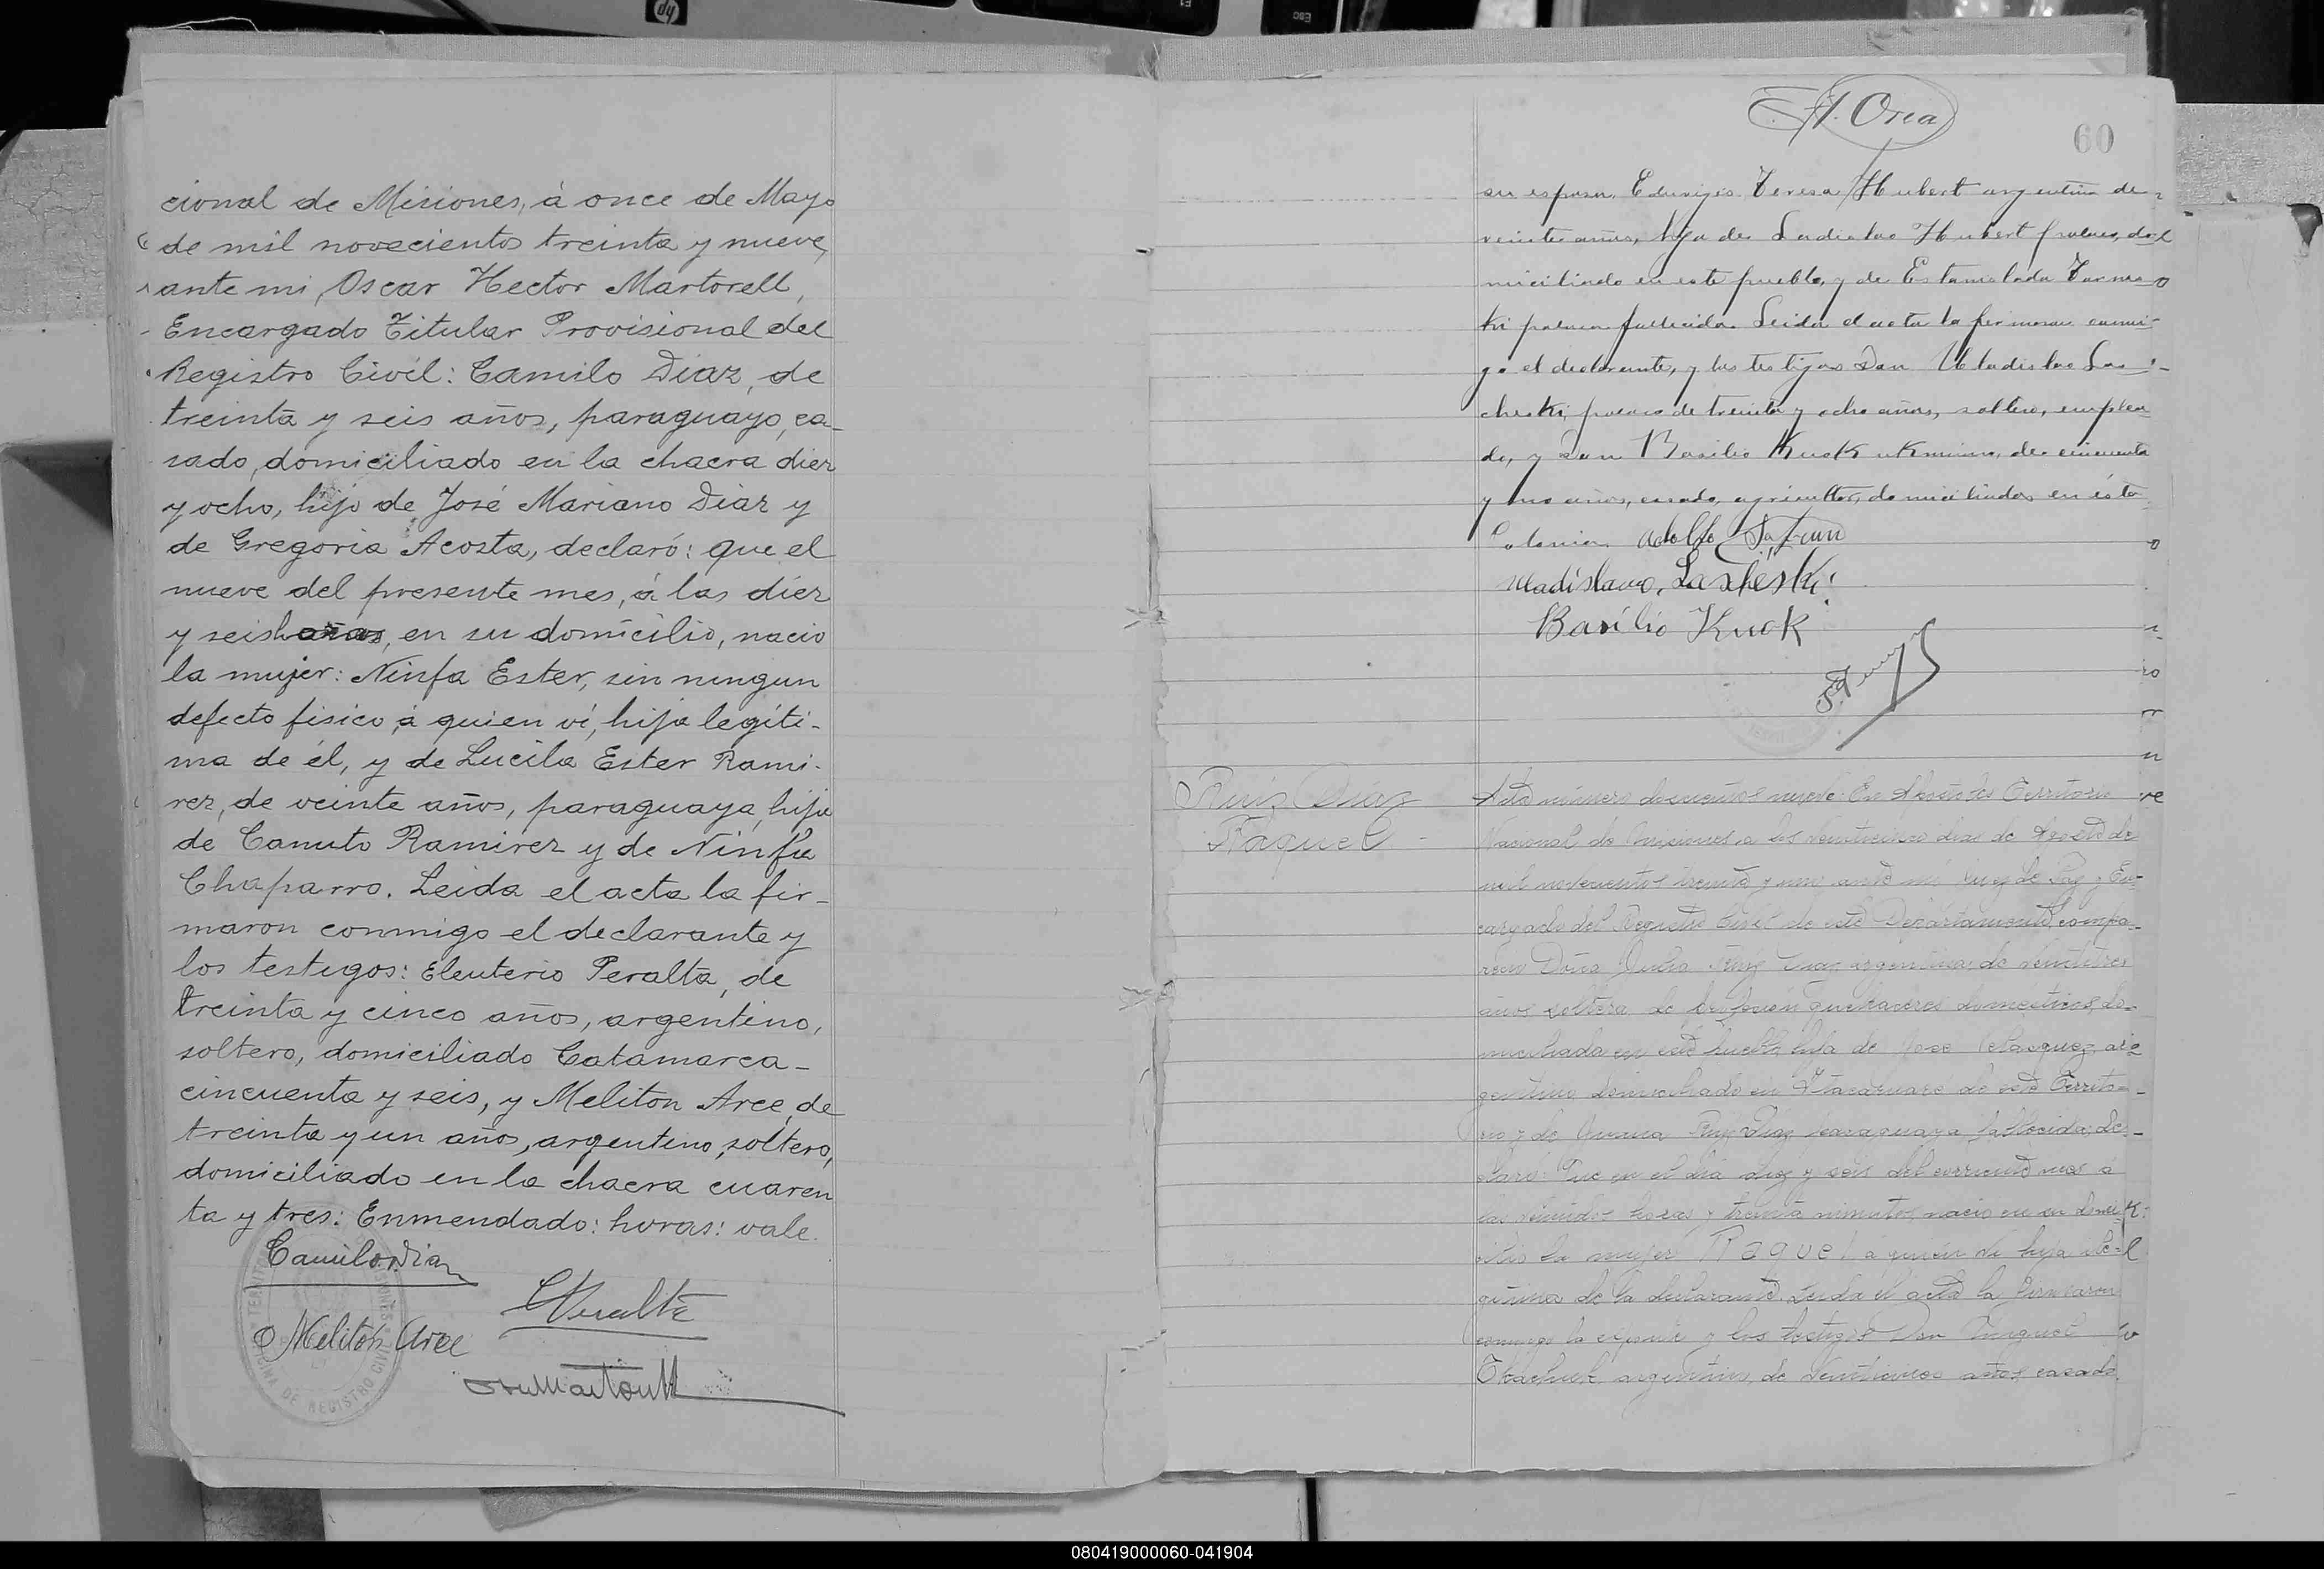 cional de Misiones, à once de Mayo
de mil novecientos treinta y nueve,
ante mi, Oscar Hector Martorell,
Encargado Titular Provisional del
Registro Civil: Camilo Diaz, de
treinta y seis años, paraguayo, ca-
sado, domiciliado en la chacra diez
y ocho, hijo de José Mariano Diaz y
de Gregoria Acosta, declaró: que el
nueve del presente mes, á las diez
y seis horas, en su domicilio, nacio
la mujer: Ninfa Ester, sin ningun
defecto fisico, á quien vi, hija legiti-
ma de él, y de Lucila Ester Rami-
rez, de veinte años, paraguaya, hija
de Canuto Ramirez y de Ninfa
Chaparro. Leida el acta la fir-
maron conmigo el declarante y
los testigos: Eleuterio Peralta, de
treinta y cinco años, argentino,
soltero, domiciliado Catamarca-
cincuenta y seis, y Meliton Arce, de
treinta y un años, argentino, soltero,
domiciliado en la chacra cuaren
ta y tres: Enmendado: horas: vale.
Camilo Diaz
EPeralta
Meliton Arce
60
su esposa, Eduvigis Teresa Hubert argentina de
veinte años, hija de Ladislao Hubert polaco, do-
miciliado en este pueblo, y de Estanislada
polaca fallecida. Leida el acta la firmaron conmi-
go el declarante, y los testigos Don Uladislao Las-
cheski, polaco de treinta y ocho años, soltero, emplea
do, y Don Basilio Kuok ukraniano, de cincuenta
y un años, casado, agricultor, domiciliados en ésta
Colonia. Adolfo
Uladislavo, Lascheski
Basilio Kuok
Ruiz Diaz
Raquel
Acta número doscientos nueve: En Apostoles Territorio
Nacional de Misiones a los veinticinco dias de Agosto de
mil novecientos treinta y uno ante mi Juez de Paz y En-
cargado del Registro Civil de este Departamento, compa-
reció Doña Julia Ruiz Diaz argentina de veintitres
años soltera de profesión quehaceres domesticos, do-
miciliada en este pueblo hija de Jose Velasquez, ar-
gentino domiciliado en Itacaruaré de este Territo-
rio y de Ruiz Diaz paraguaya fallecida; de-
claró: Que en el dia diez y seis del corriente mes á
las veintidos horas y treinta minutos nacio en su domi-
cilio la mujer Raquel á quien vi hija ile-
gitima de la declarante. Leida el acta la firmaron
conmigo la exponente y los testigos Don Miguel
argentino, de veinticinco años, casado,
080419000060-041904